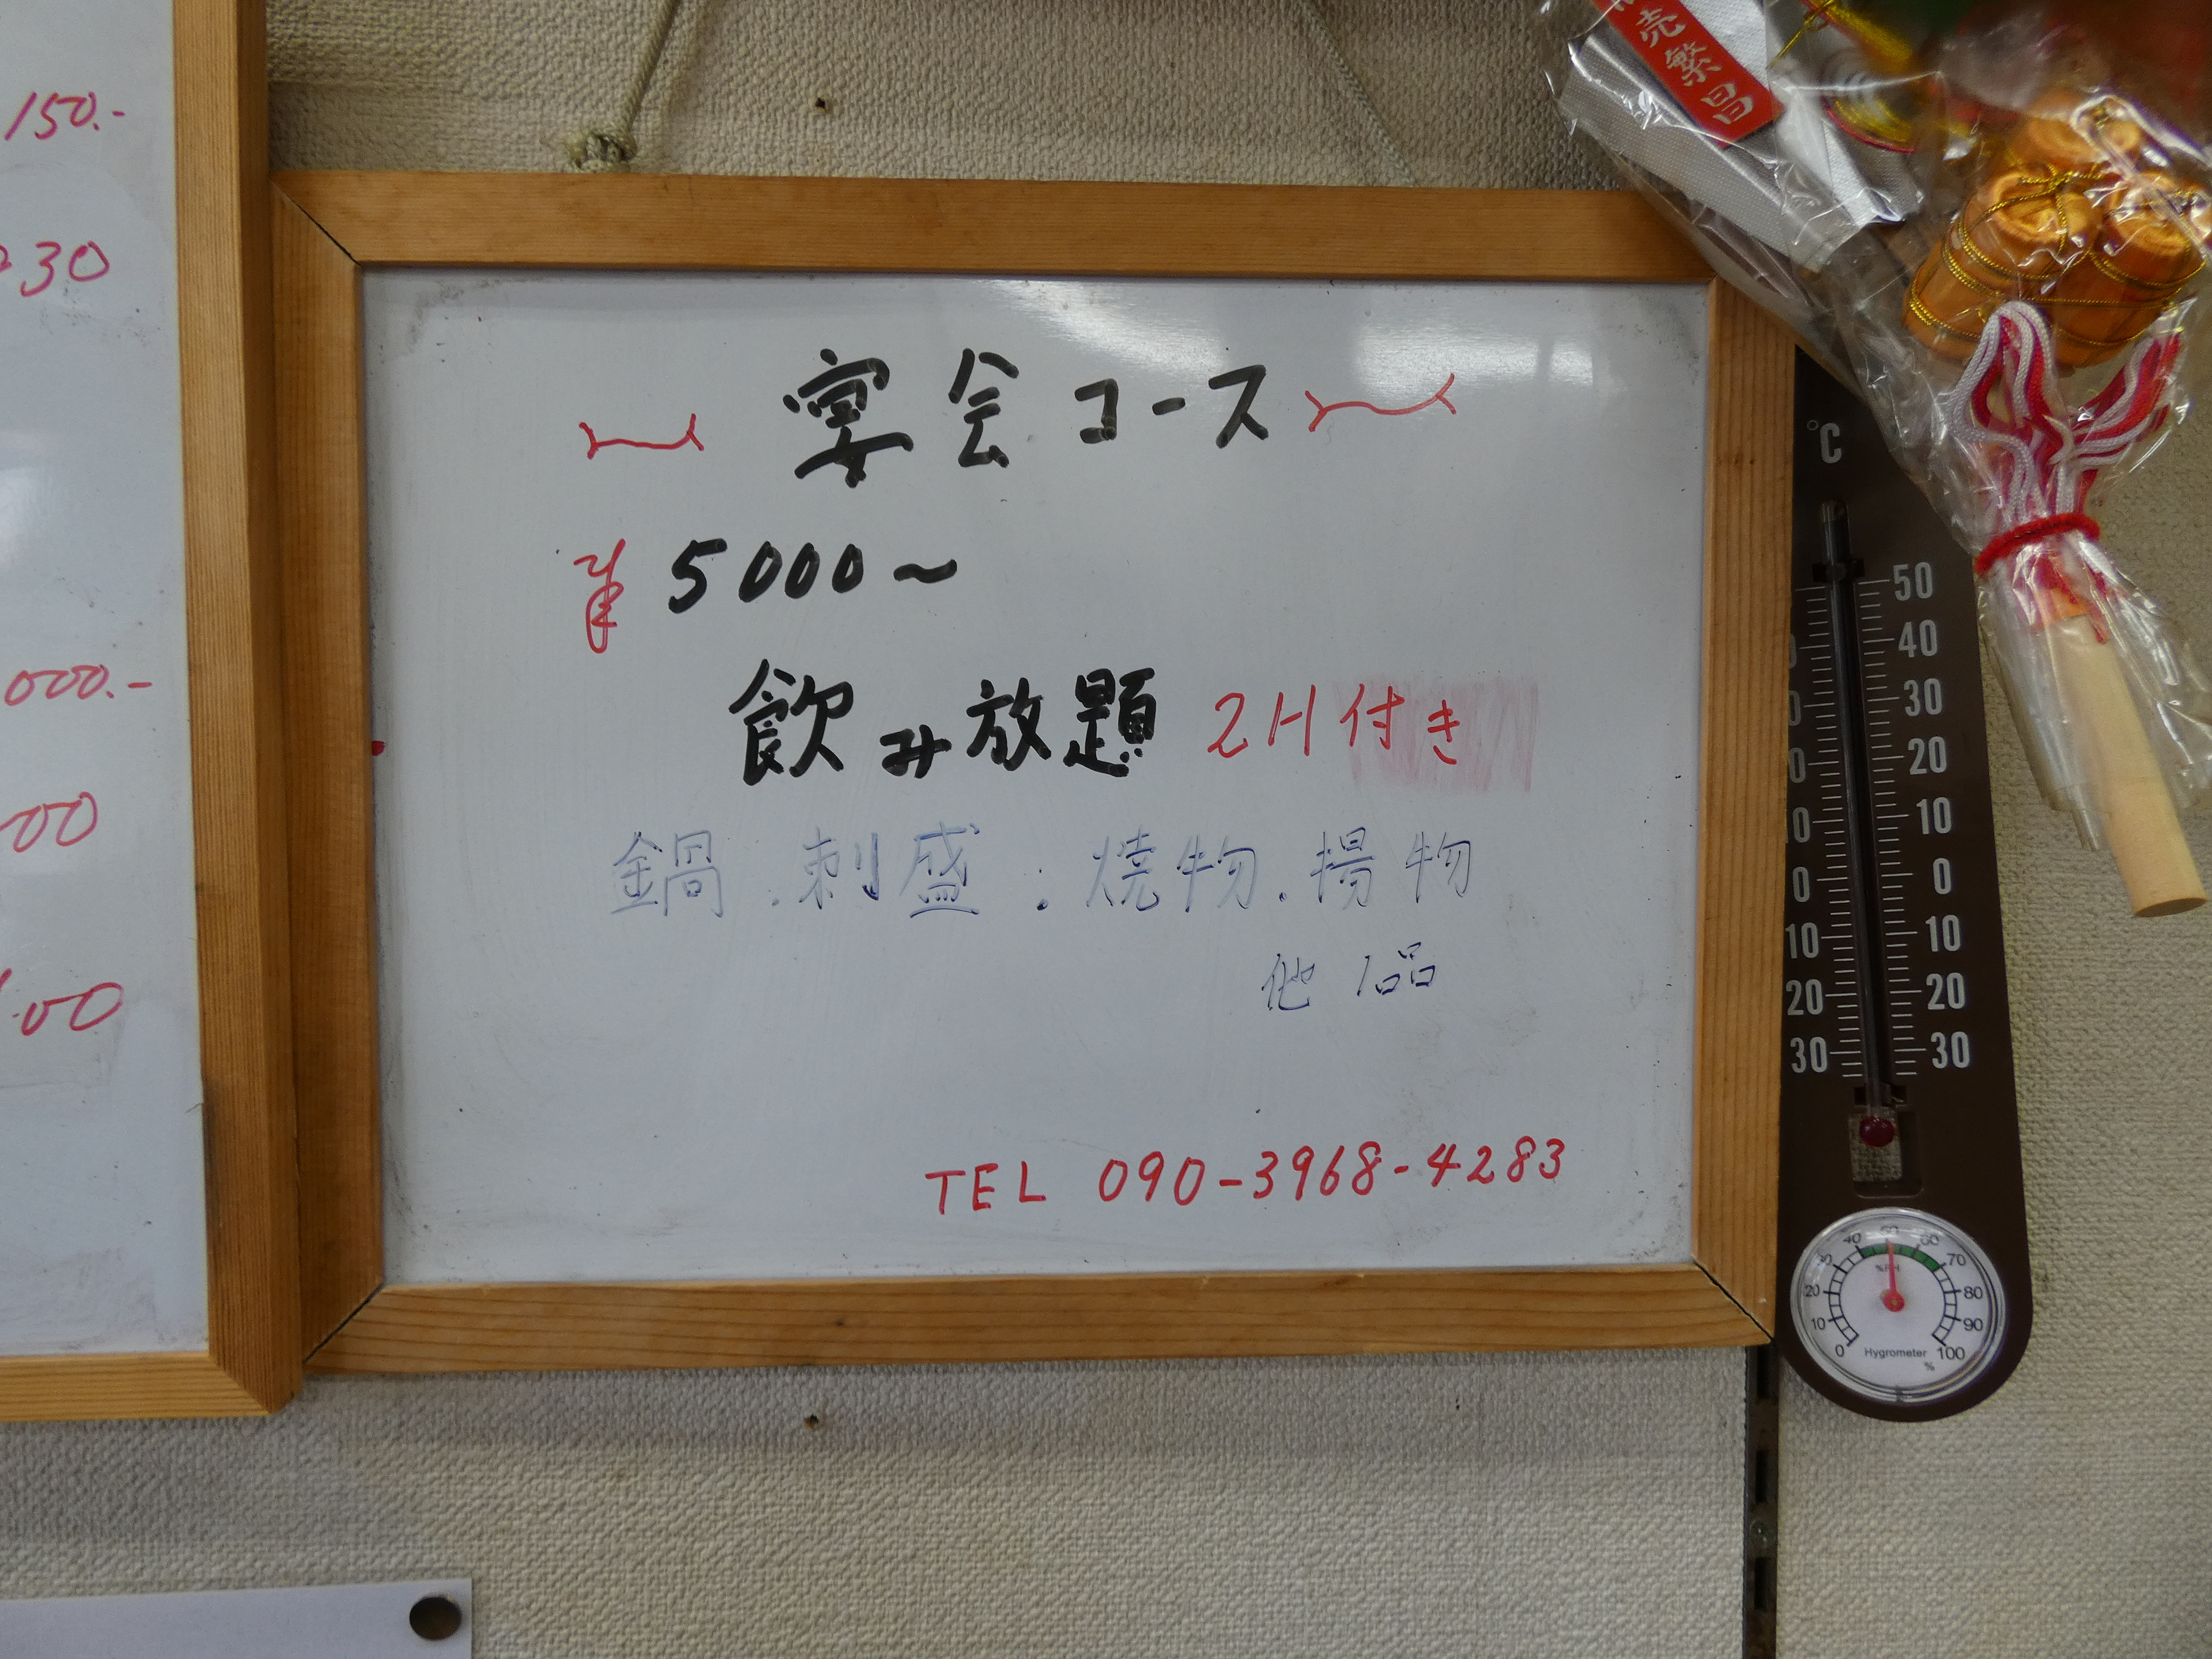 150.-
30
000.-
00
00
宴会コース
¥ 5000~
飲み放題 2H付き
鍋.刺盛.焼物.揚物
他 1品
TEL 090-3968-4283
売繁昌
°C
50
40
30
20
10
0
10
20
30
10
0
10
20
30
%RH
0 10 20 30 40 50 60 70 80 90 100
Hygrometer
%